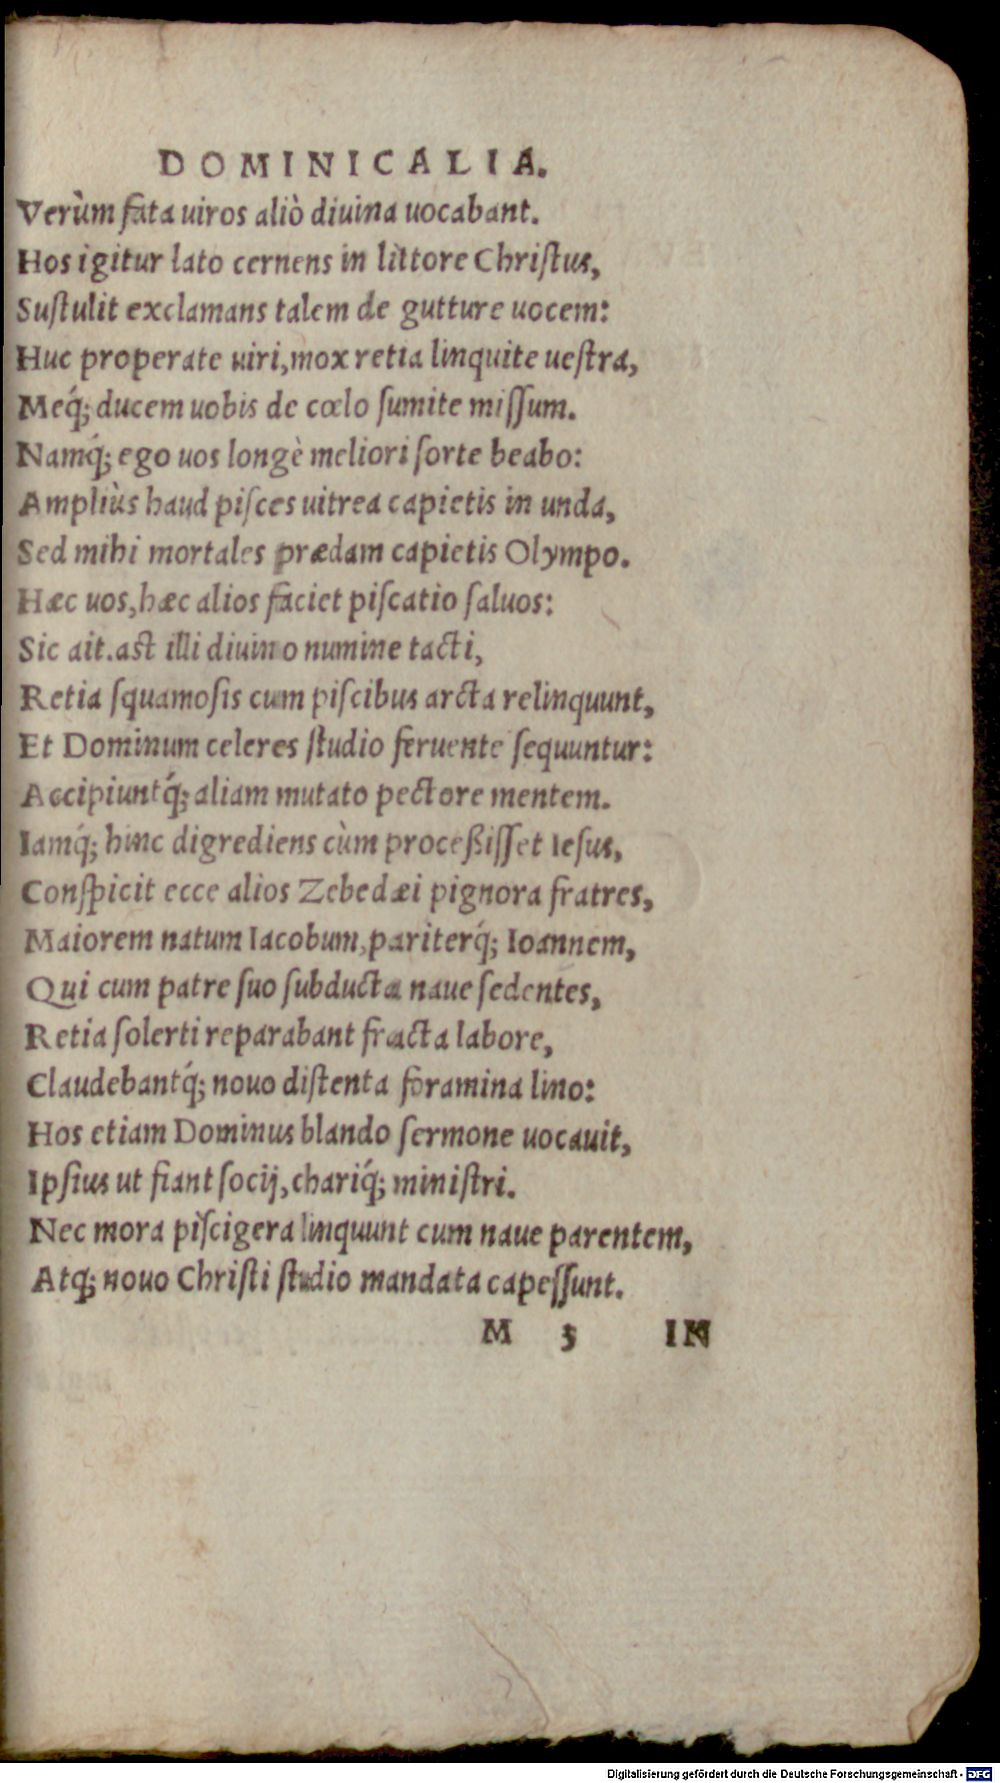 DOMINICALIA.
Verùm fata uiros aliò diuina uocabant.
Hos igitur lato cernens in littore Chriſtus,
Suſtulit exclamans talem de gutture uocem:
Huc properate uiri, mox retia linquite ueſtra,
Meq́; ducem uobis de cœlo ſumite miſſum.
Namq́; ego uos longè meliori ſorte beabo:
Ampliùs haud piſces uitrea capietis in unda,
Sed mihi mortales prædam capietis Olympo.
Hæc uos, hæc alios faciet piſcatio ſaluos:
Sic ait. aſt illi diuino numine tacti,
Retia ſquamoſis cum piſcibus arcta relinquunt,
Et Dominum celeres ſtudio feruente ſequuntur:
Accipiuntq́; aliam mutato pectore mentem.
Iamq́; hinc digrediens cùm proceßiſſet Ieſus,
Conſpicit ecce alios Zebedæi pignora fratres,
Maiorem natum Iacobum, pariterq́; Ioannem,
Qui cum patre ſuo ſubducta naue ſedentes,
Retia ſolerti reparabant fracta labore,
Claudebantq́; nouo diſtenta foramina lino:
Hos etiam Dominus blando ſermone uocauit,
Ipſius ut fiant ſocij, chariq́; miniſtri.
Nec mora piſcigera linquunt cum naue parentem,
Atq; nouo Chriſti ſtudio mandata capeſſunt.
M 3 IN
Digitalisierung gefördert durch die Deutsche Forschungsgemeinschaft - DFG